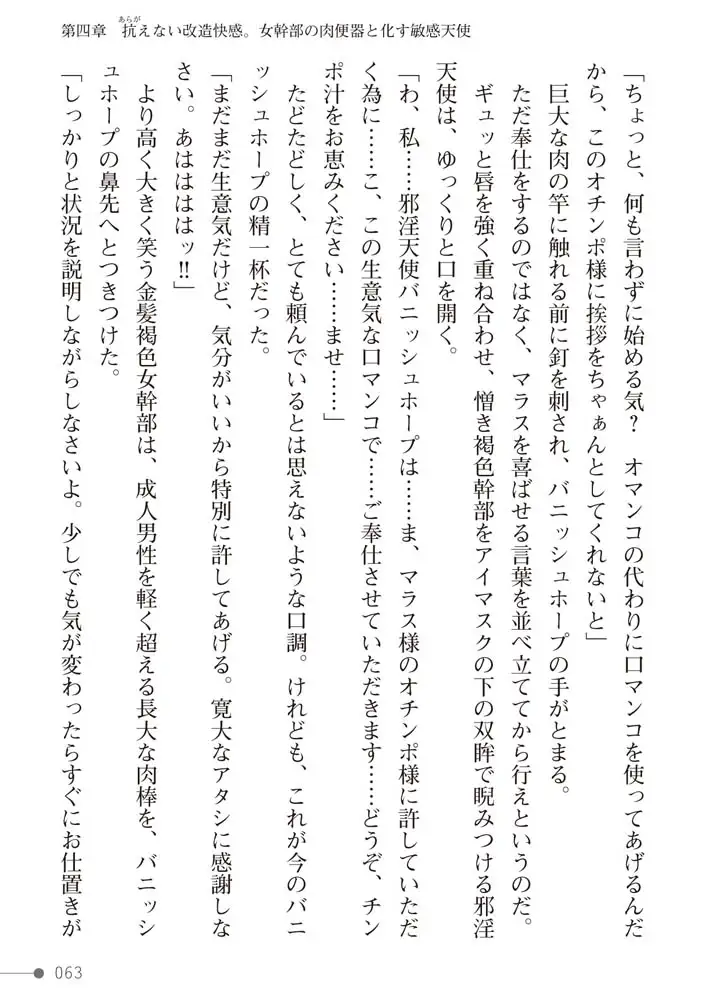 第四章　抗えない改造快感。女幹部の肉便器と化す敏感天使
あらが
「ちょっと、何も言わずに始める気？　オマンコの代わりに口マンコを使ってあげるんだ
から、このオチンポ様に挨拶をちゃぁんとしてくれないと」
　巨大な肉の竿に触れる前に釘を刺され、バニッシュホープの手がとまる。
　ただ奉仕をするのではなく、マラスを喜ばせる言葉を並べ立ててから行えというのだ。
　ギュッと唇を強く重ね合わせ、憎き褐色幹部をアイマスクの下の双眸で睨みつける邪淫
天使は、ゆっくりと口を開く。
「わ、私……邪淫天使バニッシュホープは……ま、マラス様のオチンポ様に許していただ
く為に……こ、この生意気な口マンコで……ご奉仕させていただきます……どうぞ、チン
ポ汁をお恵みください……ませ……」
　たどたどしく、とても頼んでいるとは思えないような口調。けれども、これが今のバニ
ッシュホープの精一杯だった。
「まだまだ生意気だけど、気分がいいから特別に許してあげる。寛大なアタシに感謝しな
さい。あはははははッ!!」
　より高く大きく笑う金髪褐色女幹部は、成人男性を軽く超える長大な肉棒を、バニッシ
ュホープの鼻先へとつきつけた。
「しっかりと状況を説明しながらしなさいよ。少しでも気が変わったらすぐにお仕置きが
063